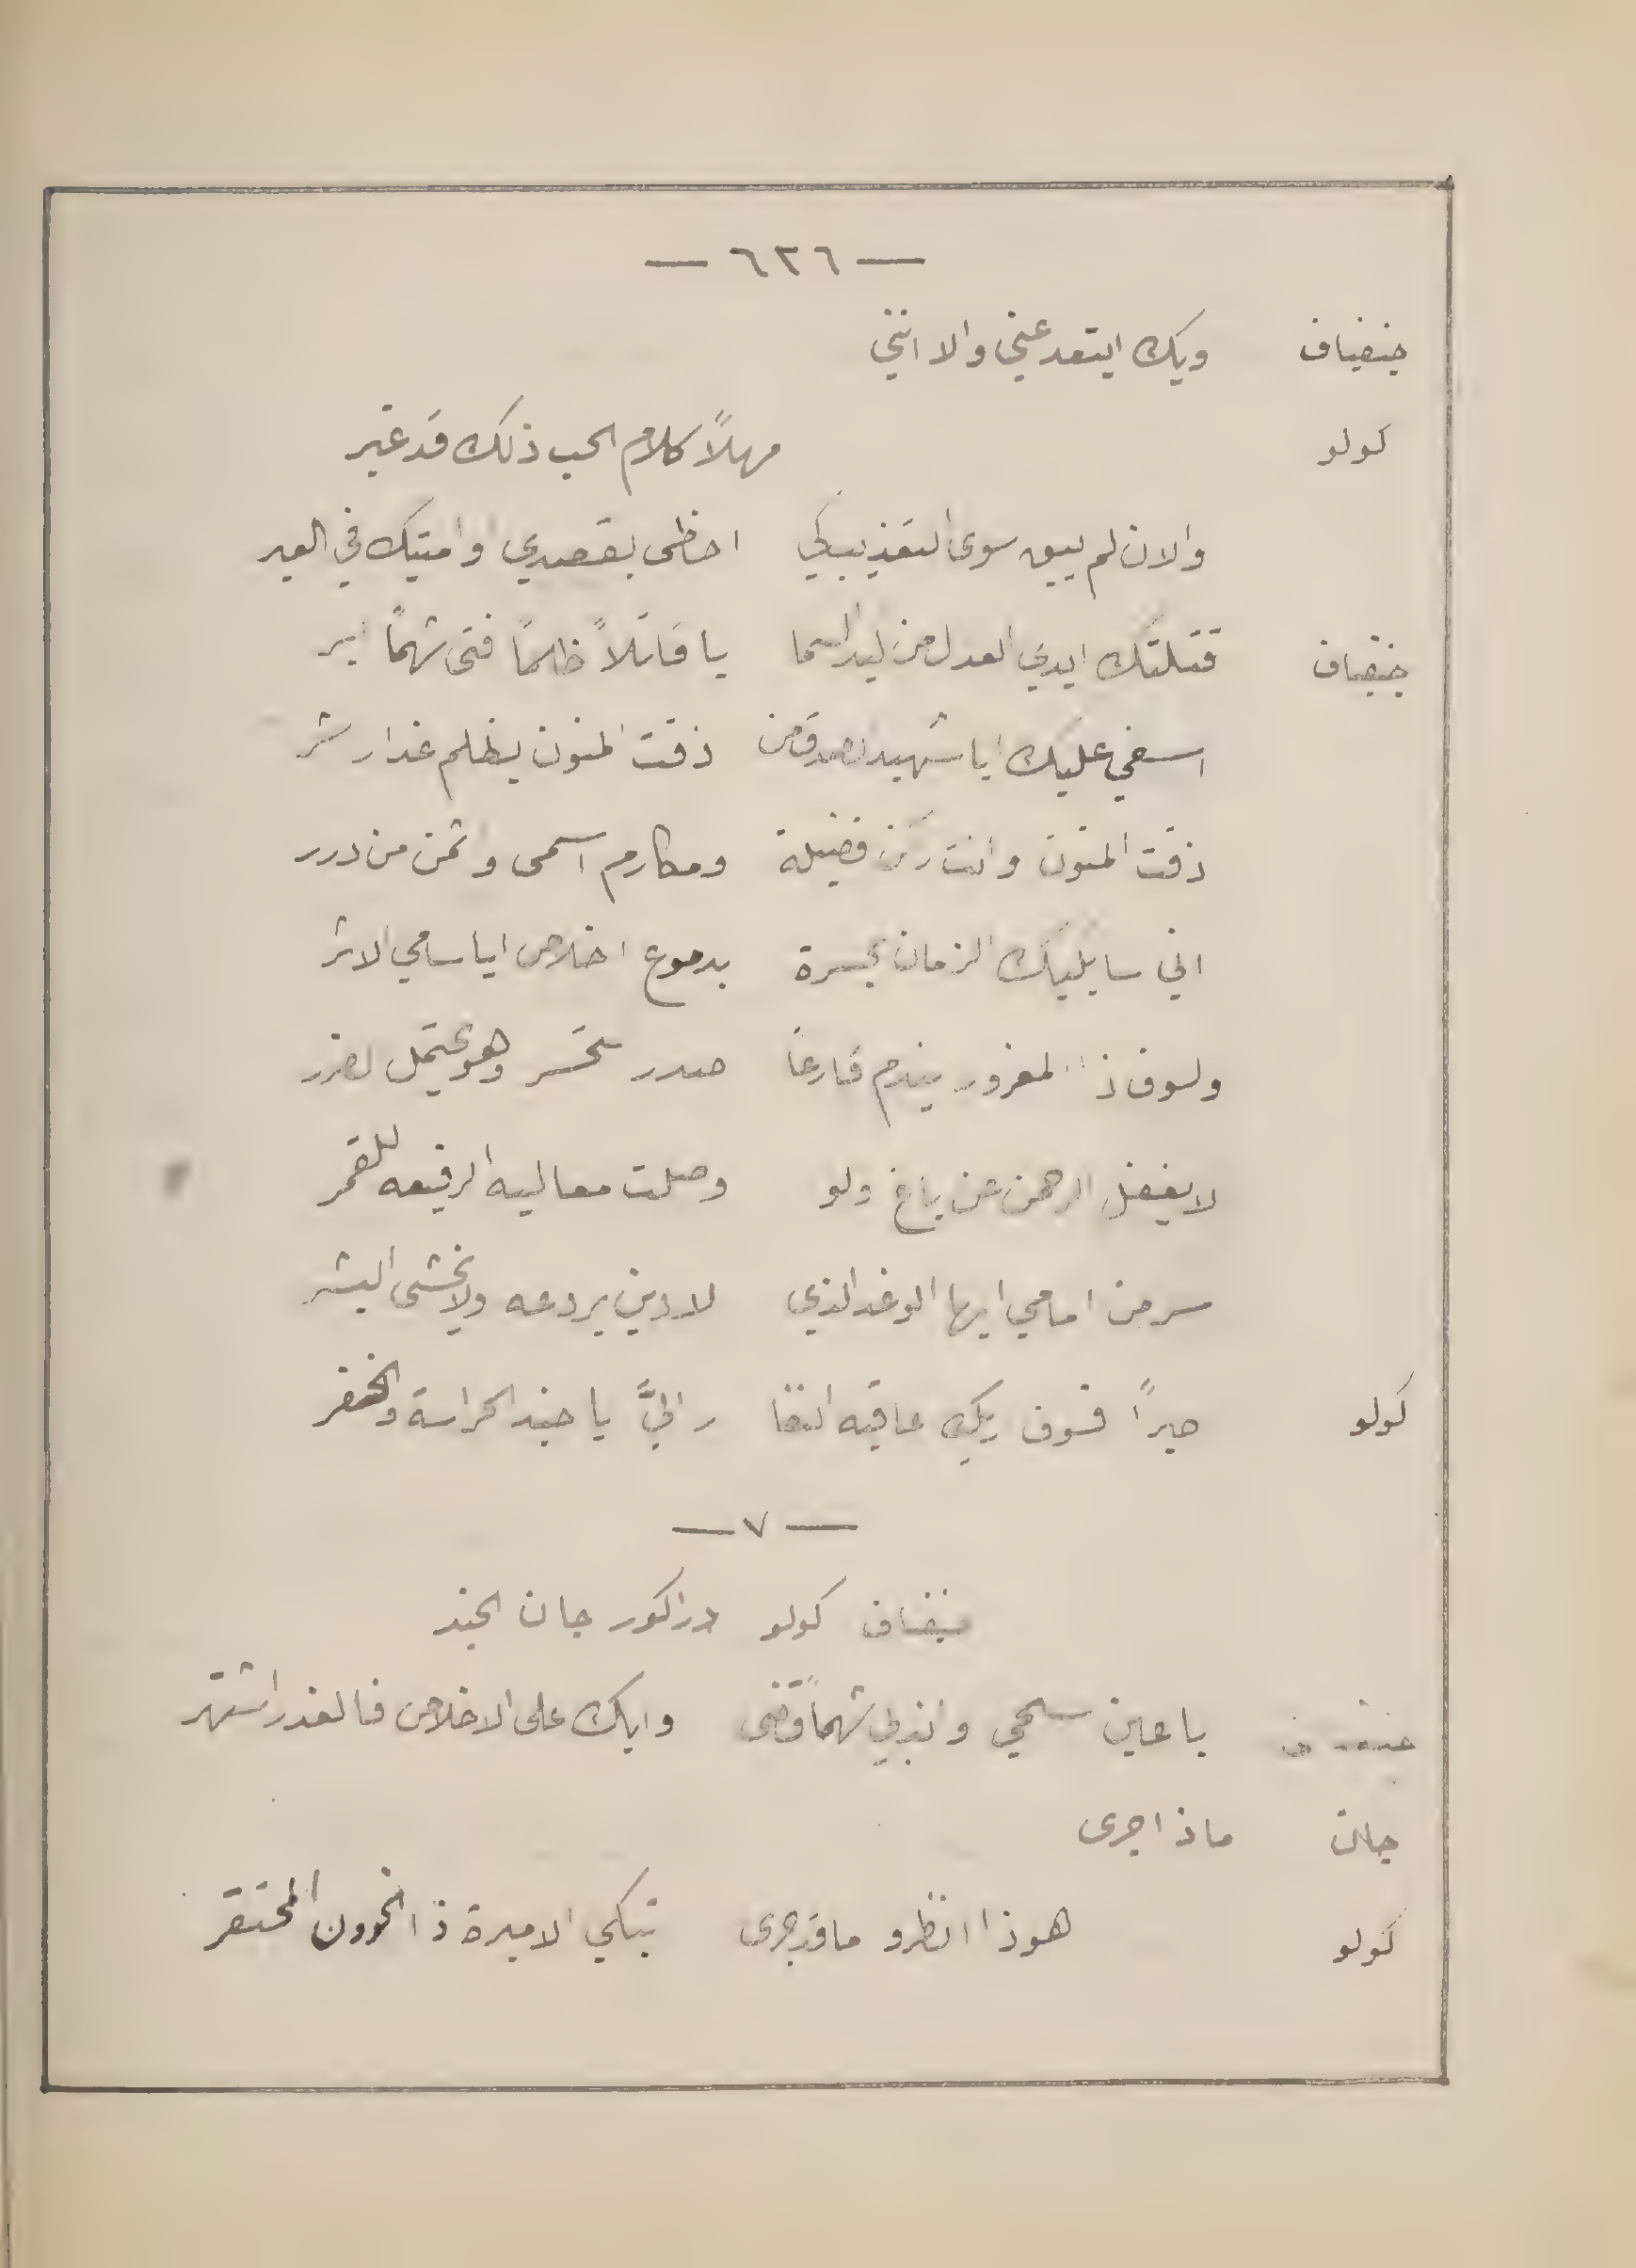 — ٦٢٦ —
جنفياف ويك ابتعد عني والا انني
كولو مهلاً كلام الحب ذلك قد غبر
والان لم يبق سوى التعذيب كي احظى بقصدي او امتيك في العبر
جنفياف قتلتك ايدي العدل من ليد السما يا قاتلاً ظلماً فتى شهماً ابر
اسفي عليك ايا شهيد الصدق من ذقت المنون بظلم غدار شر
ذقت المنون وانت ركن فضيلة ومكارم اسمى واثمن من درر
اني سابكيك الزمان بحسرة بدموع اخلاص ايا سامي الاثر
ولسوف ذا المغرور يندم قارعاً صدر تحسر وهو يحتمل الضرر
لا يغفل الرحمن عن باغ ولو وصلت معاليه الرفيعه للقمر
سر من امامي ايها الوغد الذي لا دين يردعه ولا يخشى البشر
كولو صبراً فسوف يك عاقبه النفا ر اليَّ يا جند الحراسة والخفر
— ٧ —
جنفياف كولو دراكور جان الجند
جنفياف يا عين سحي واندبي شهماً قضى وابك على الاخلاص فالغدر اشتهر
جان ماذا جرى
كولو هوذا انظرو ما قد جرى تبكي الاميرة ذا الخوون المحتقر